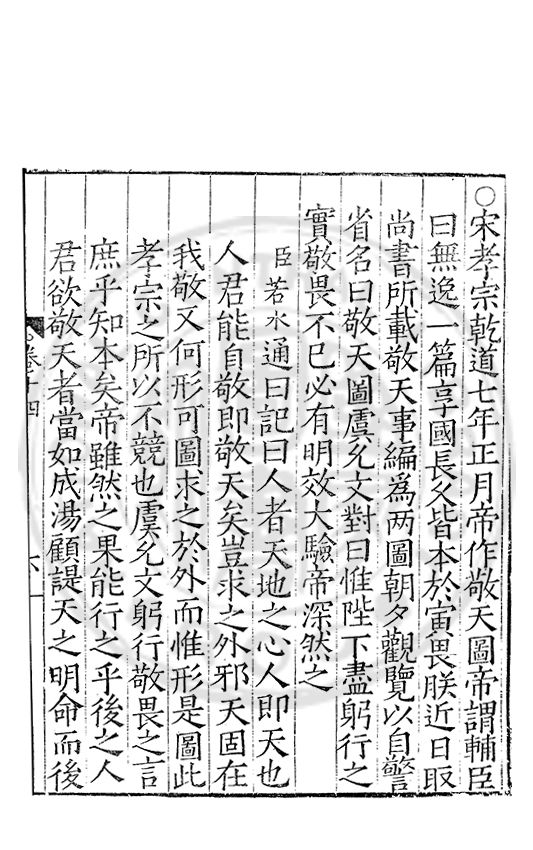 ○宋孝宗乾道七年正月帝作敬天圖帝謂輔臣
曰無逸一篇享國長久皆本於寅畏朕近日取
尚書所載敬天事編爲两圖朝夕觀覽以自警
省名曰敬天圖虞允文對曰惟陛下盡躬行之
實敬畏不已必有明效大驗帝深然之
臣若水通曰記曰人者天地之心人即天也
人君能自敬即敬天矣豈求之外邪天固在
我敬又何形可圖求之於外而惟形是圖此
孝宗之所以不競也虞允文躬行敬畏之言
庶乎知本矣帝雖然之果能行之乎後之人
君欲敬天者當如成湯顧諟天之明命而後
卷十四